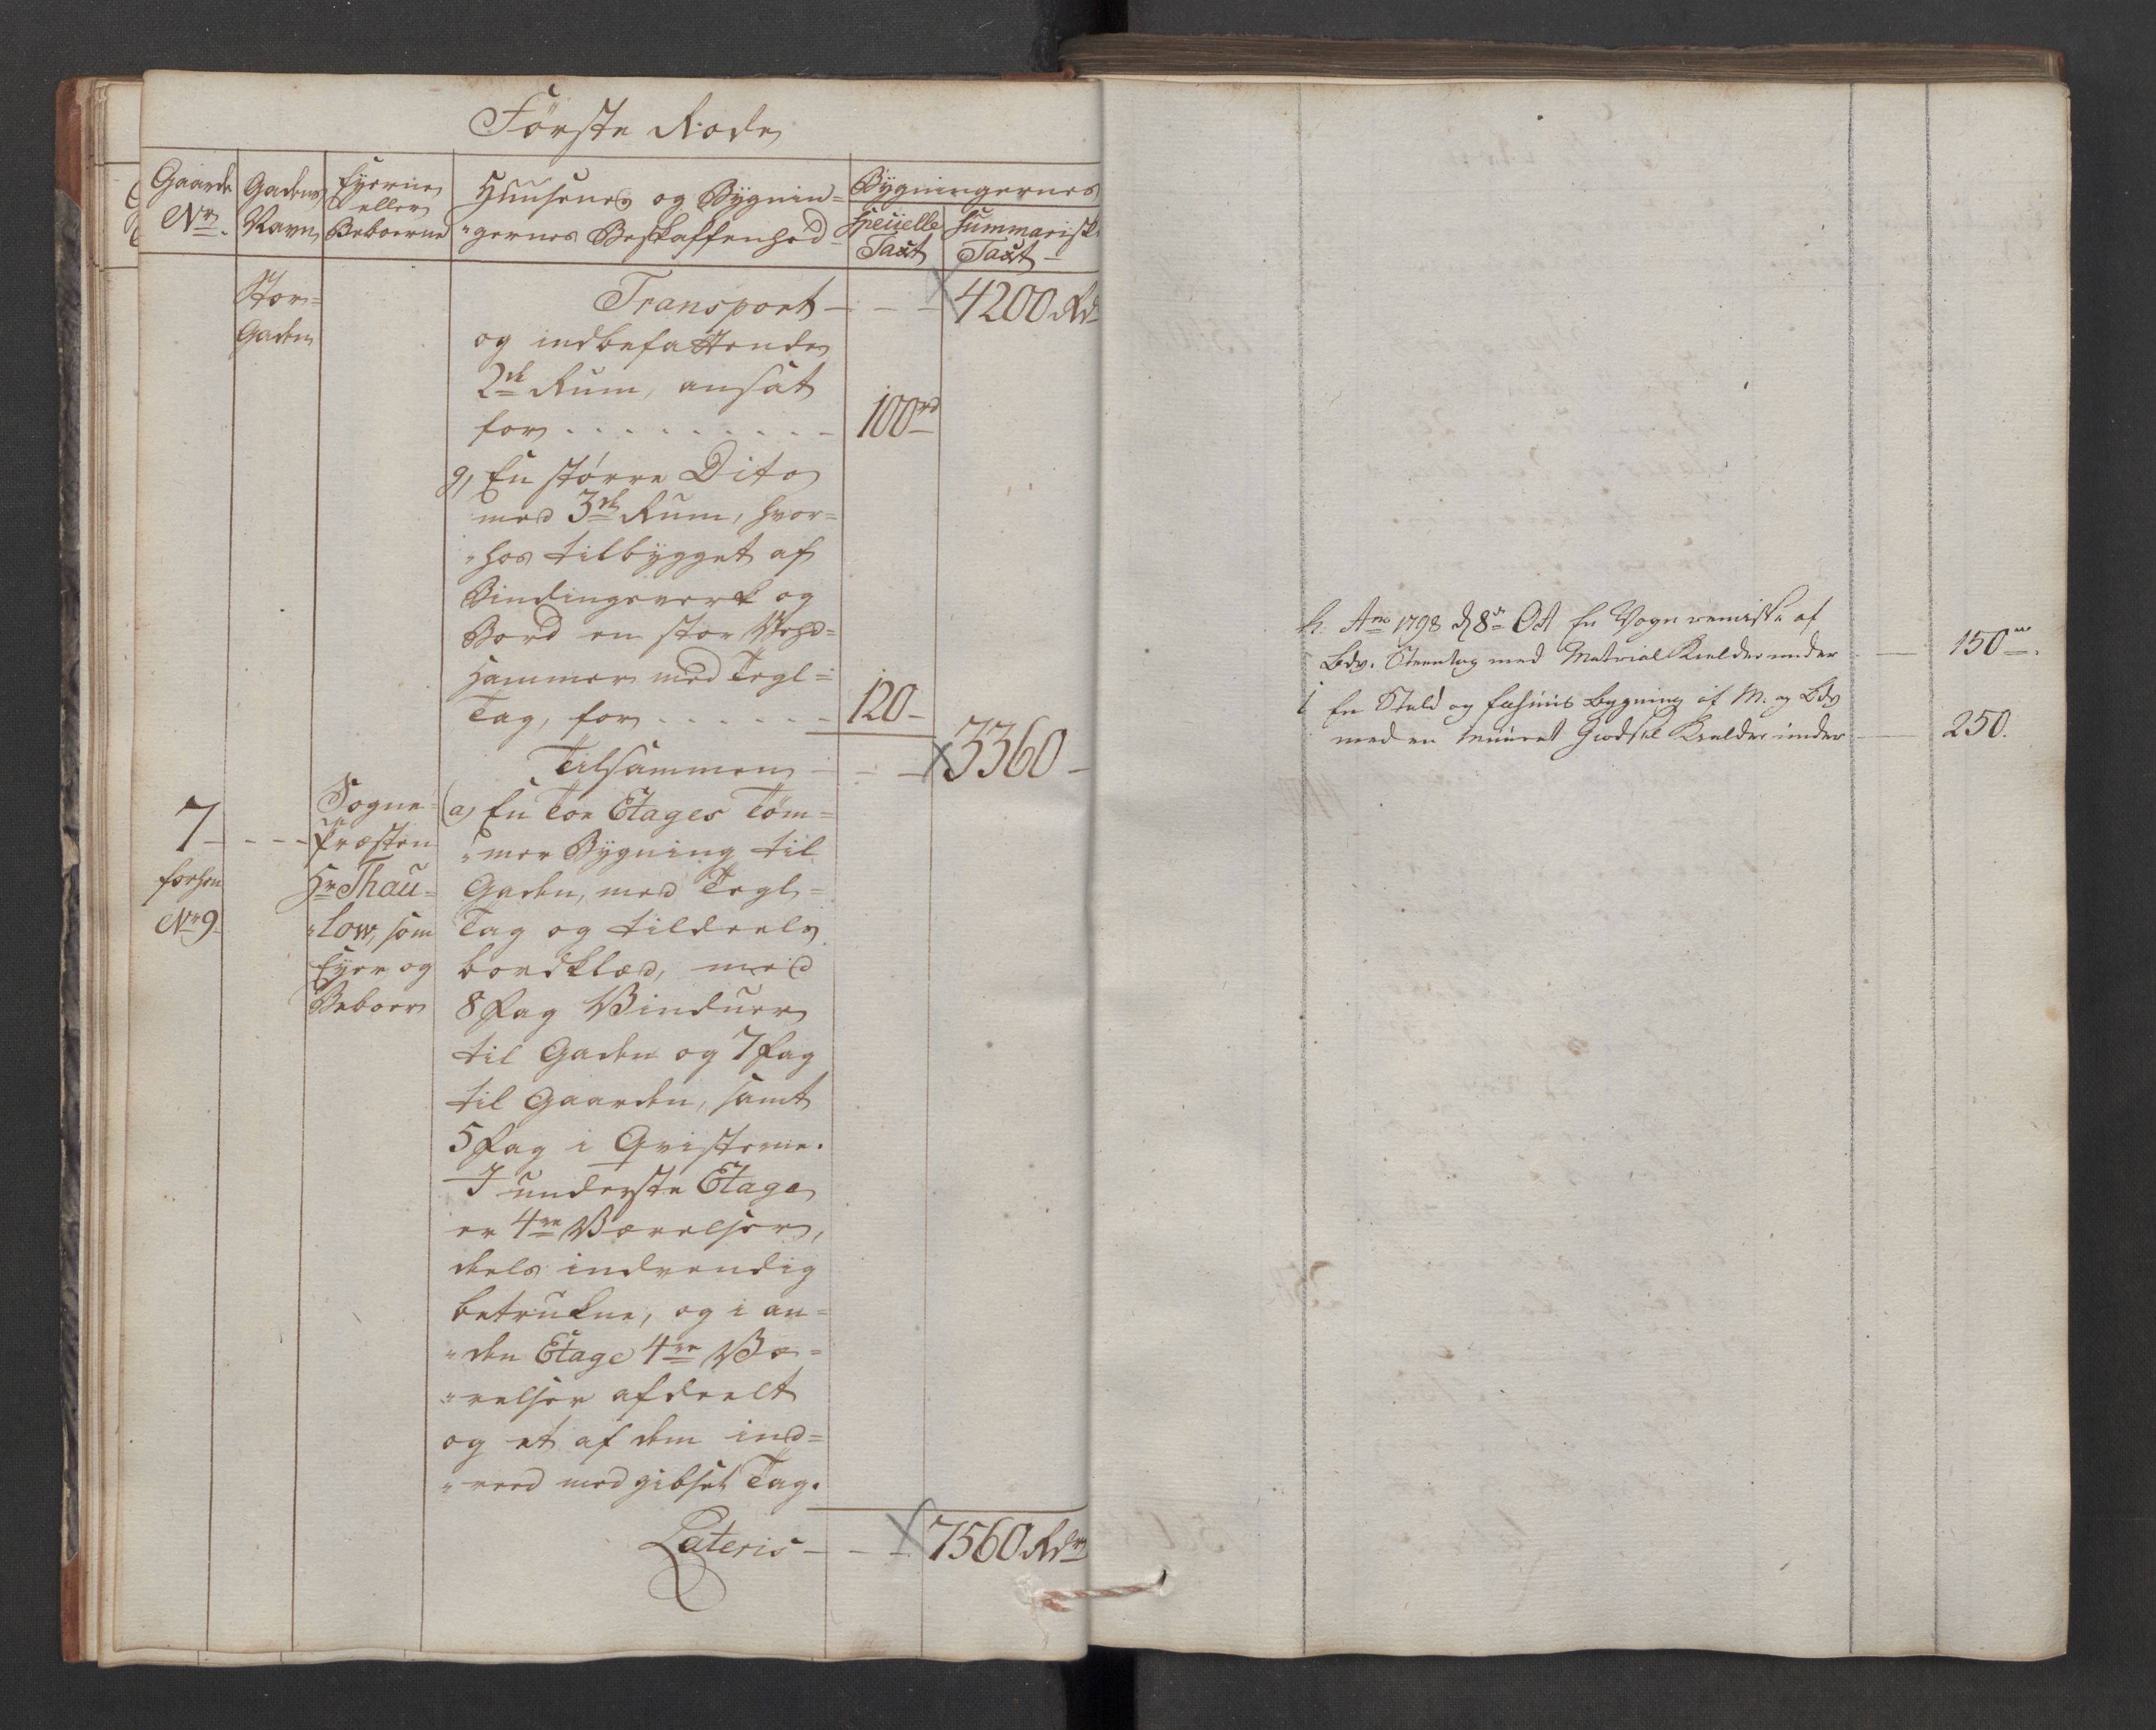 Förste Rode
Gaarde Nr.
Gadens Navn
Eyerne eller Beboerne
Huusenes og Bygnin=
"gernes Beskaffenhed
Bygningernes
Speciielle Taxt
Summarisk Taxt
Stor=
Gaden
Transport - - - 4200 Rd
og indbefattende
2de Rum, ansat
for . . . . . . . . . 100rd
g, En större Dito
med 3de Rum, hvor=
"hos tilbÿgget af
Bindingsverk og
Bord en stor Vehd=
Hammer med Tegl=
Tag, for . . . . . . 120 -
Tilsammen - - - 3360 -
7 -
forhen
No 9
Sogne=
Præsten
Hr Thau=
"low, som
Eyer og
Beboer
a, En Toe Etages Töm=
"mer Bÿgning til
Gaden, med Tegl=
Tag og tildeels
bordklæd, med
8 Fag Vinduer
til Gaden og 7 Fag
til Gaarden, samt
5 Fag i Qvisterne.
I underste Etage
er 4re Værelser,
deels indvendig
betrukne, og i an=
"den Etage 4re Væ=
"relser afdeelt
og et af dem ind=
"reed med gibset Tag.
Lateris - - - 7560 Rdr
h. Ano 1798 d 8de Oct En Vogn remisse af
Bdv. Steentag med Matrial Kielder under - 150
i En Stald og Fæhuus bygning af M: og Bdv
med en muuret Giødsel Kielder under - 250.